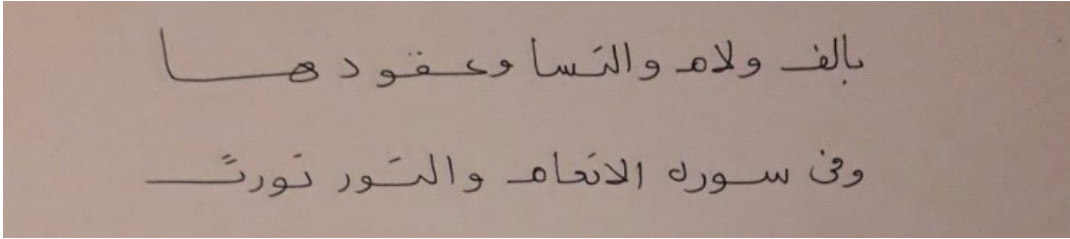 بالف ولام والنسا وعقودها
وفى سورة الانعام والنور نورت